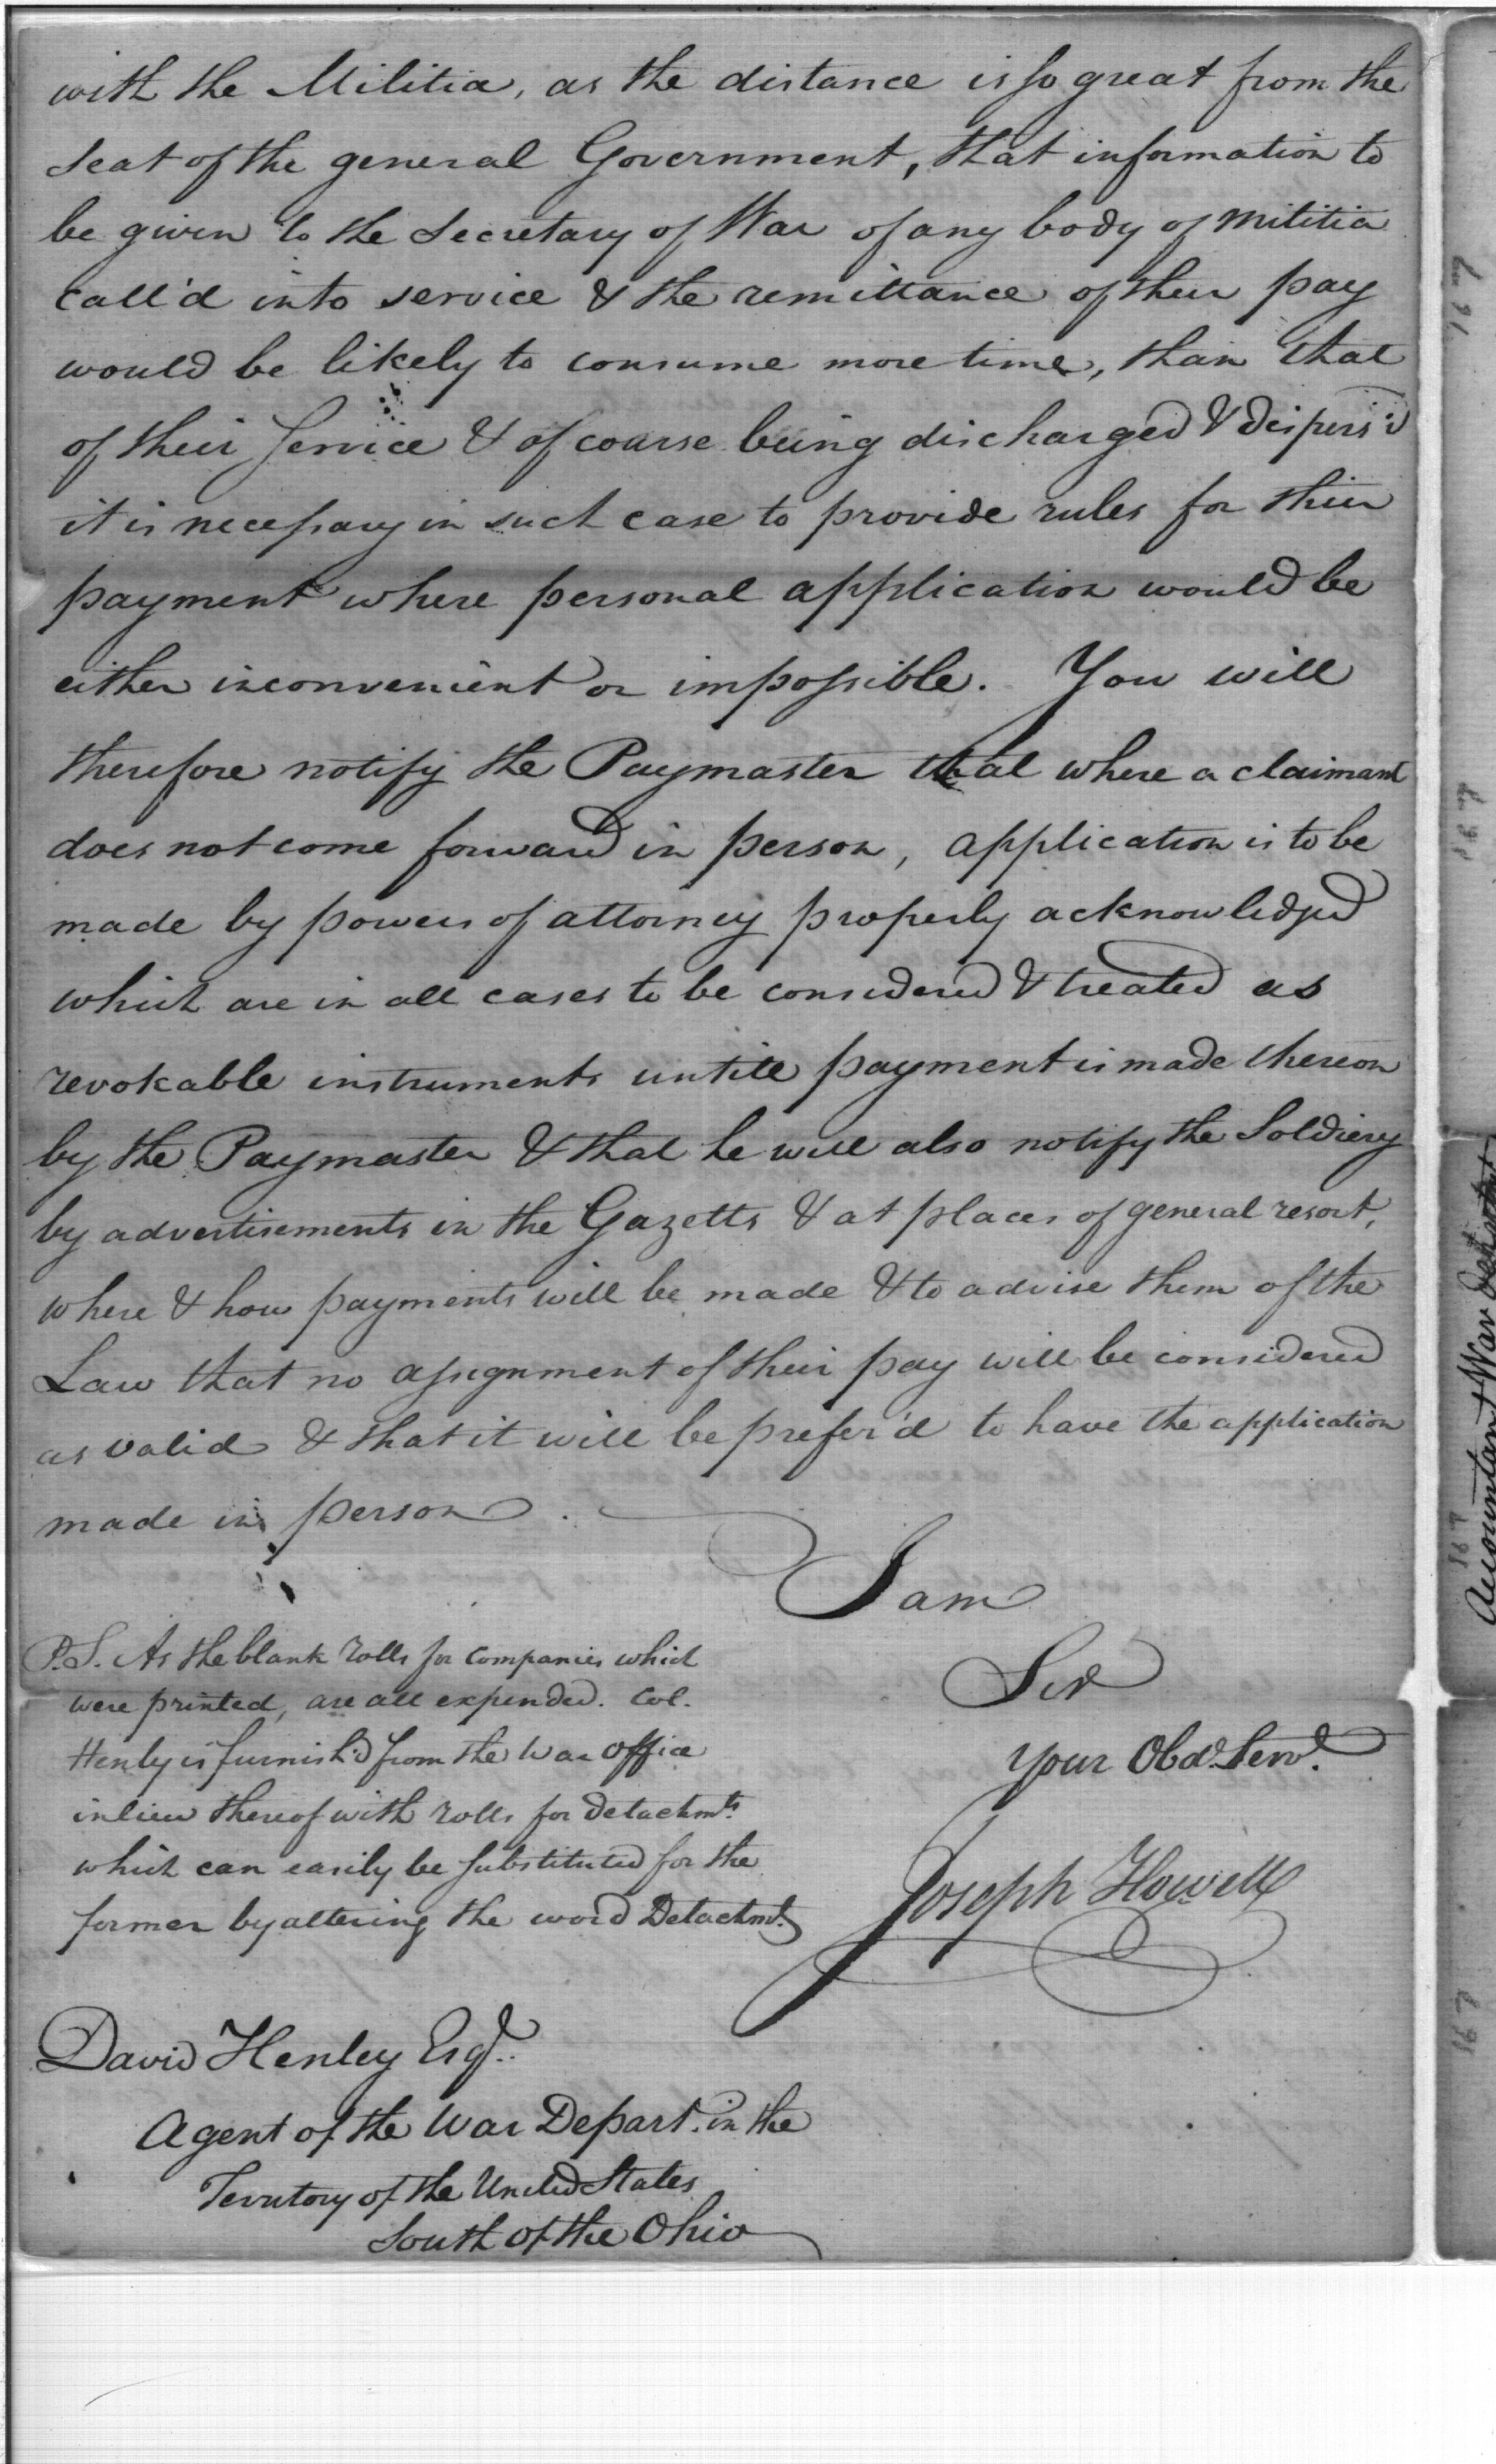 with the Militia, as the distance is so great from the
seat of the general Government, that information to
be given to the Secretary of War of any body of Militia
call'd into service & the remittance of their pay
would be likely to consume more time, than that
of their Service & of course being discharged & dispers'd
it is necessary in such case to provide rules for their
payment where personal application would be
either inconvenient or impossible. You will
therefore notify the Paymaster that where a claimant
does not come forward in person, application is to be
made by powers of attorney properly acknowledged
which are in all cases to be considered & treated as
revokable instruments untill payment is made thereon
by the Paymaster & that he will also notify the Soldiery
by advertisements in the Gazetts & at places of general resort,
where & how payments will be made & to advise them of the
Law that no assignment of their pay will be considered
as valid & that it will be prefer'd to have the application
made in person.
I am
Sir
your Obd. Serv.
Joseph Howell
P.S. As the blank rolls for Companies which
were printed, are all expended. Col.
Henly is furnish'd from the War Office
in lieu thereof with rolls for Detachmts.
which can easily be substituted for the
former by altering the word Detachmt.
David Henley Esqr.
Agent of the War Depart. in the
Territory of the United States
South of the Ohio
Accountant War